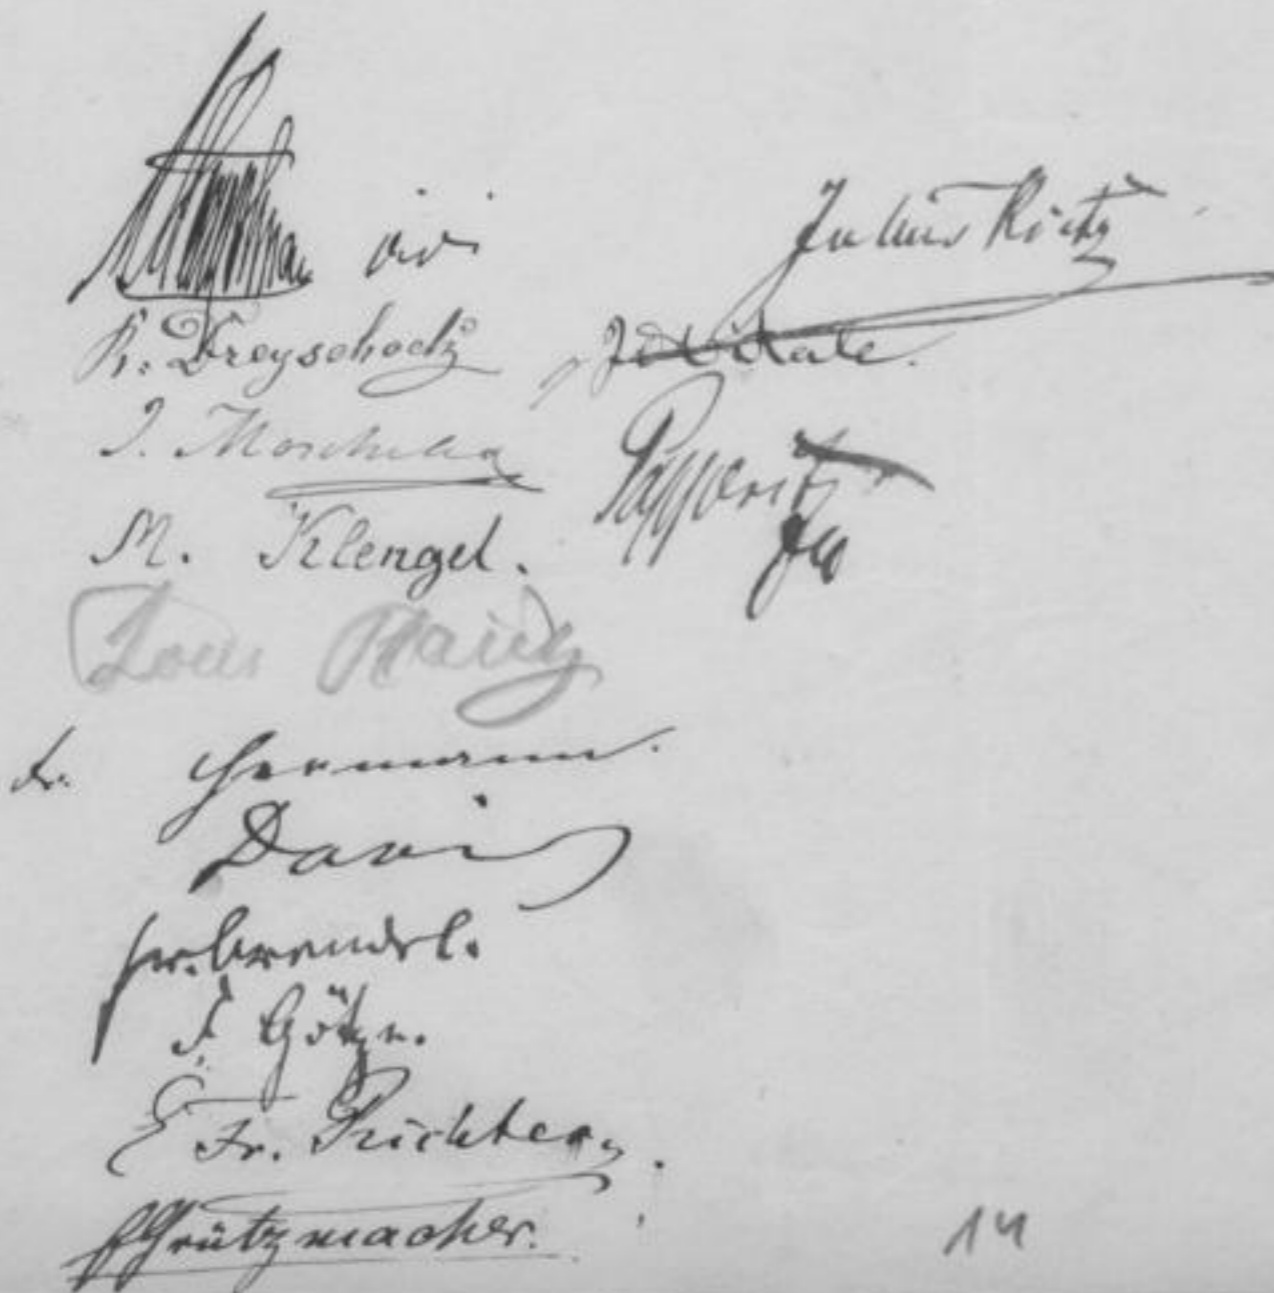 R. Dreyschock
I. Moscheles
M. Klengel.
Louis Plaidy
Fr. Hermann.
David
Fr. Brendel.
F. Götze.
E. Fr. Richter.
FGrützmacher.
Julius Rietz
Papperitz
14